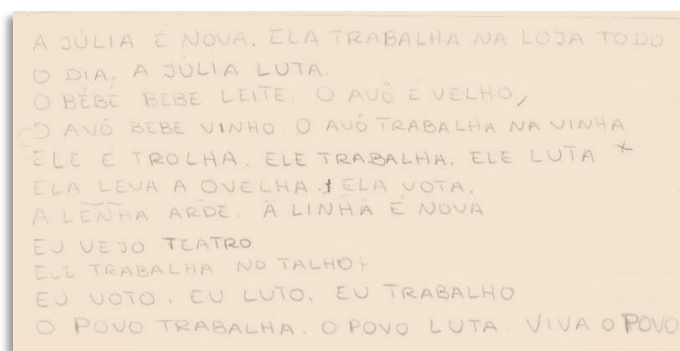 A JÚLIA É NOVA. ELA TRABALHA NA LOJA TODO
O DIA. A JÚLIA LUTA.
O BÉBÉ BEBE LEITE. O AVÔ É VELHO,
O AVÔ BEBE VINHO. O AVÔ TRABALHA NA VINHA
ELE É TROLHA. ELE TRABALHA. ELE LUTA
ELA LEVA A OVELHA. ELA VOTA.
A LENHA ARDE. A LINHA É NOVA
EU VEJO TEATRO
ELE TRABALHA NO TALHO
EU VOTO. EU LUTO. EU TRABALHO
O POVO TRABALHA. O POVO LUTA. VIVA O POVO